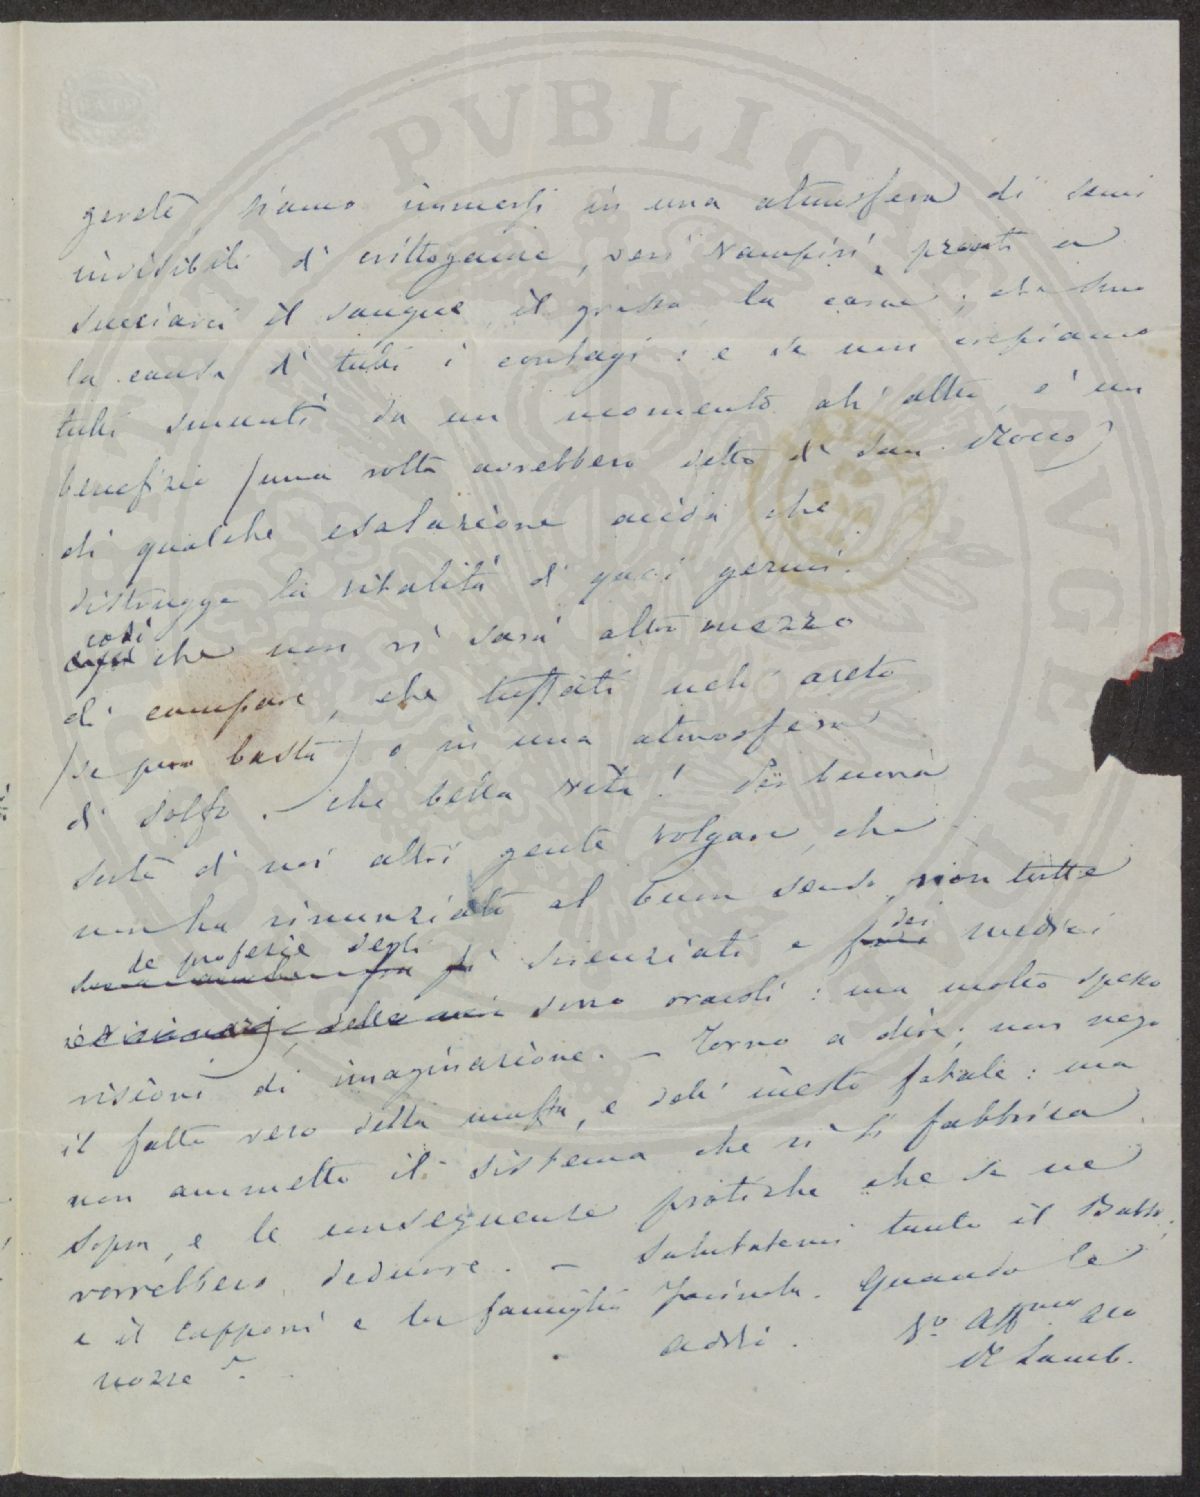 gerete, siamo immersi in una atmosfera di semi
invisibili di crittogame, veri Vampiri, pronti a
succiarci il sangue, il grasso, la carne; che sono
la causa di tutti i contagi: e se non crepiamo
tutti smunti da un momento all'altro, è un
benefizio (una volta avrebbero detto di San Rocco)
di qualche esalazione acida che
distrugge la vitalità di quei germi.
così che non vi sarà altro mezzo
di campare, che tuffati nell'aceto
(se pur basta) o in una atmosfera
di solfo. - che bella vita! Per buona
sorte di noi altri gente volgare, che
non ha rinunziato al buon senso, non tutte
le profezie degli scienziati e dei medici
sono oracoli: ma molto spesso
visioni di imaginazione. - Torno a dire, non nego
il fatto vero della muffa, e dell'innesto fatale: ma
non ammetto il sistema che vi si fabbrica
sopra, e le conseguenze pratiche che se ne
vorrebbero dedurre. - Salutatemi tanto il Babbo,
e il Capponi e la famiglia Jacinta. Quando le
nozze?
addi. Vo. Affmo
R Lamb.
PVBLIC